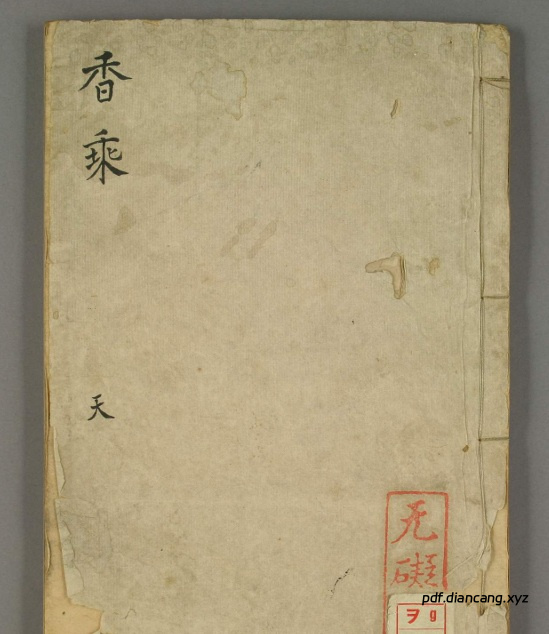 香乗
天
无礙
ヲ9
pdf.diancang.xyz